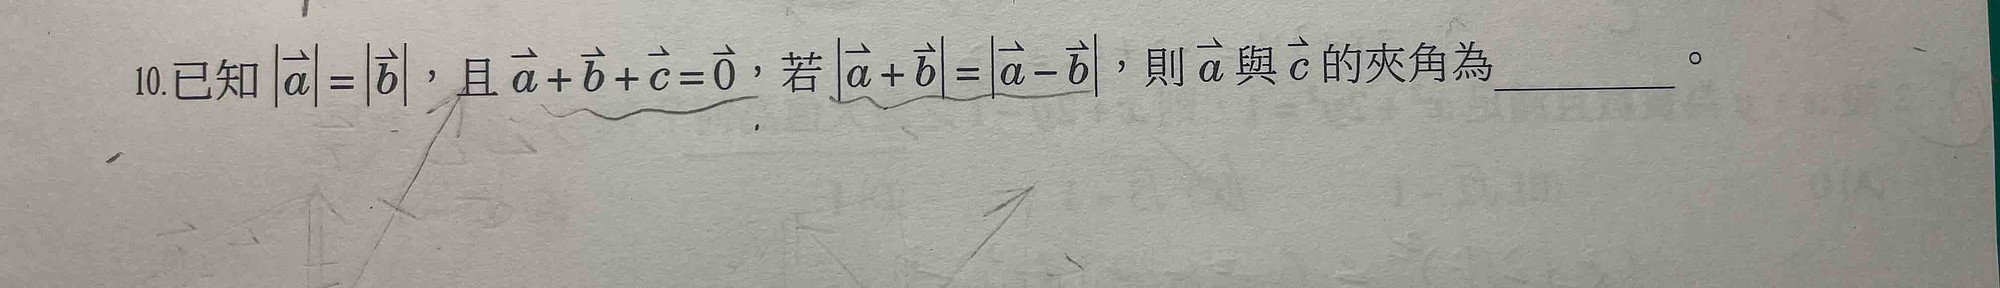 10.已知 |a⃗| = |b⃗|，且 a⃗ + b⃗ + c⃗ = 0⃗，若 |a⃗ + b⃗| = |a⃗ − b⃗|，則 a⃗ 與 c⃗ 的夾角為________。